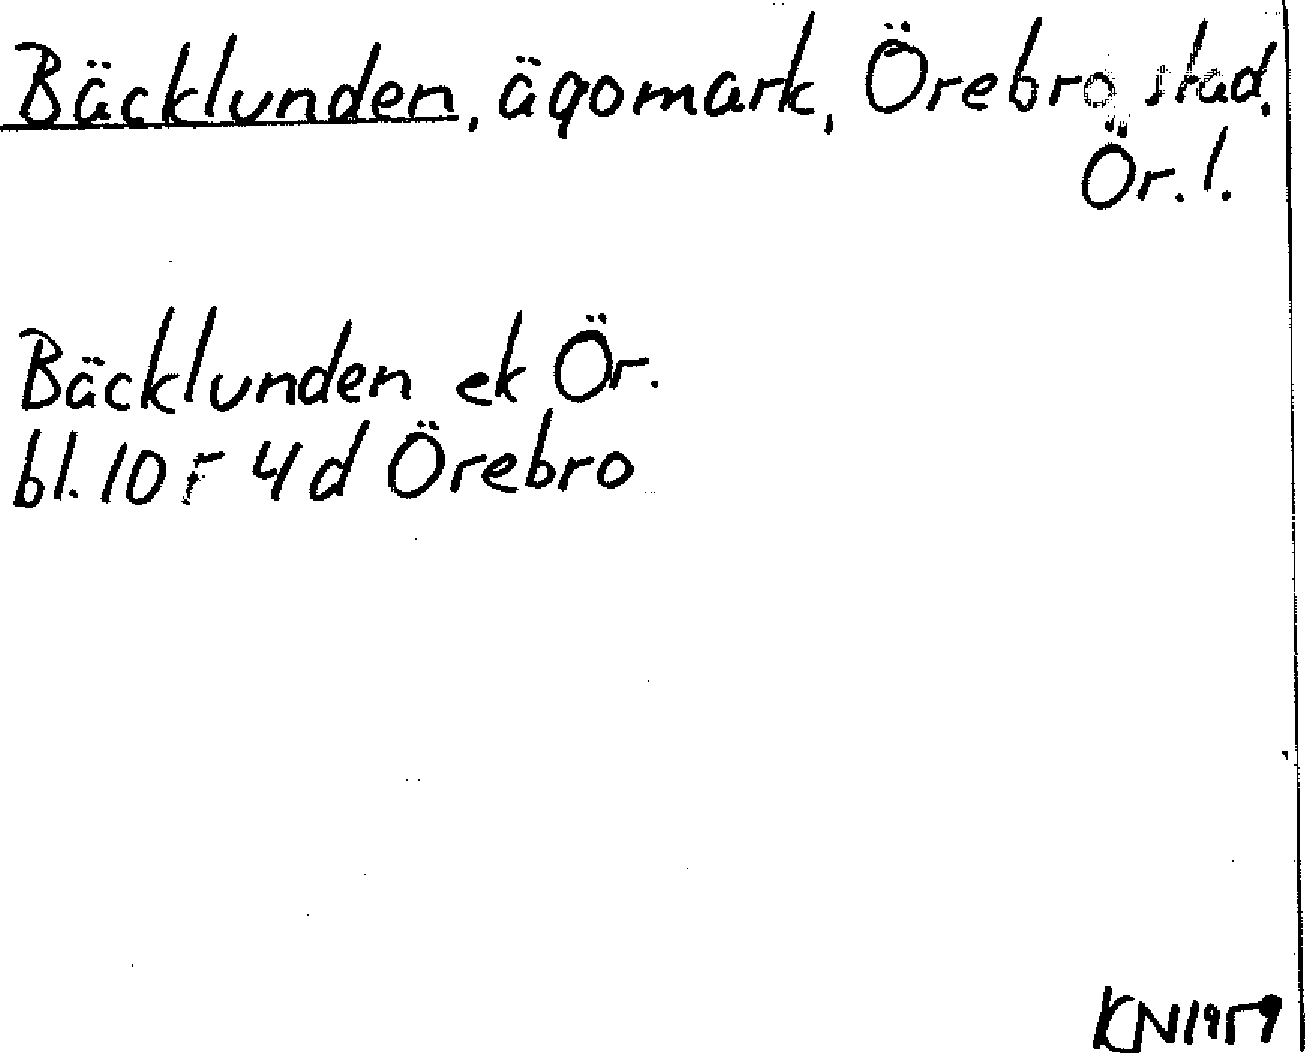 Bäcklunden, ägomark, Örebro stad,
Ör. l.
Bäcklunden ek Ör.
bl. 10 F 4d Örebro
KN 1959